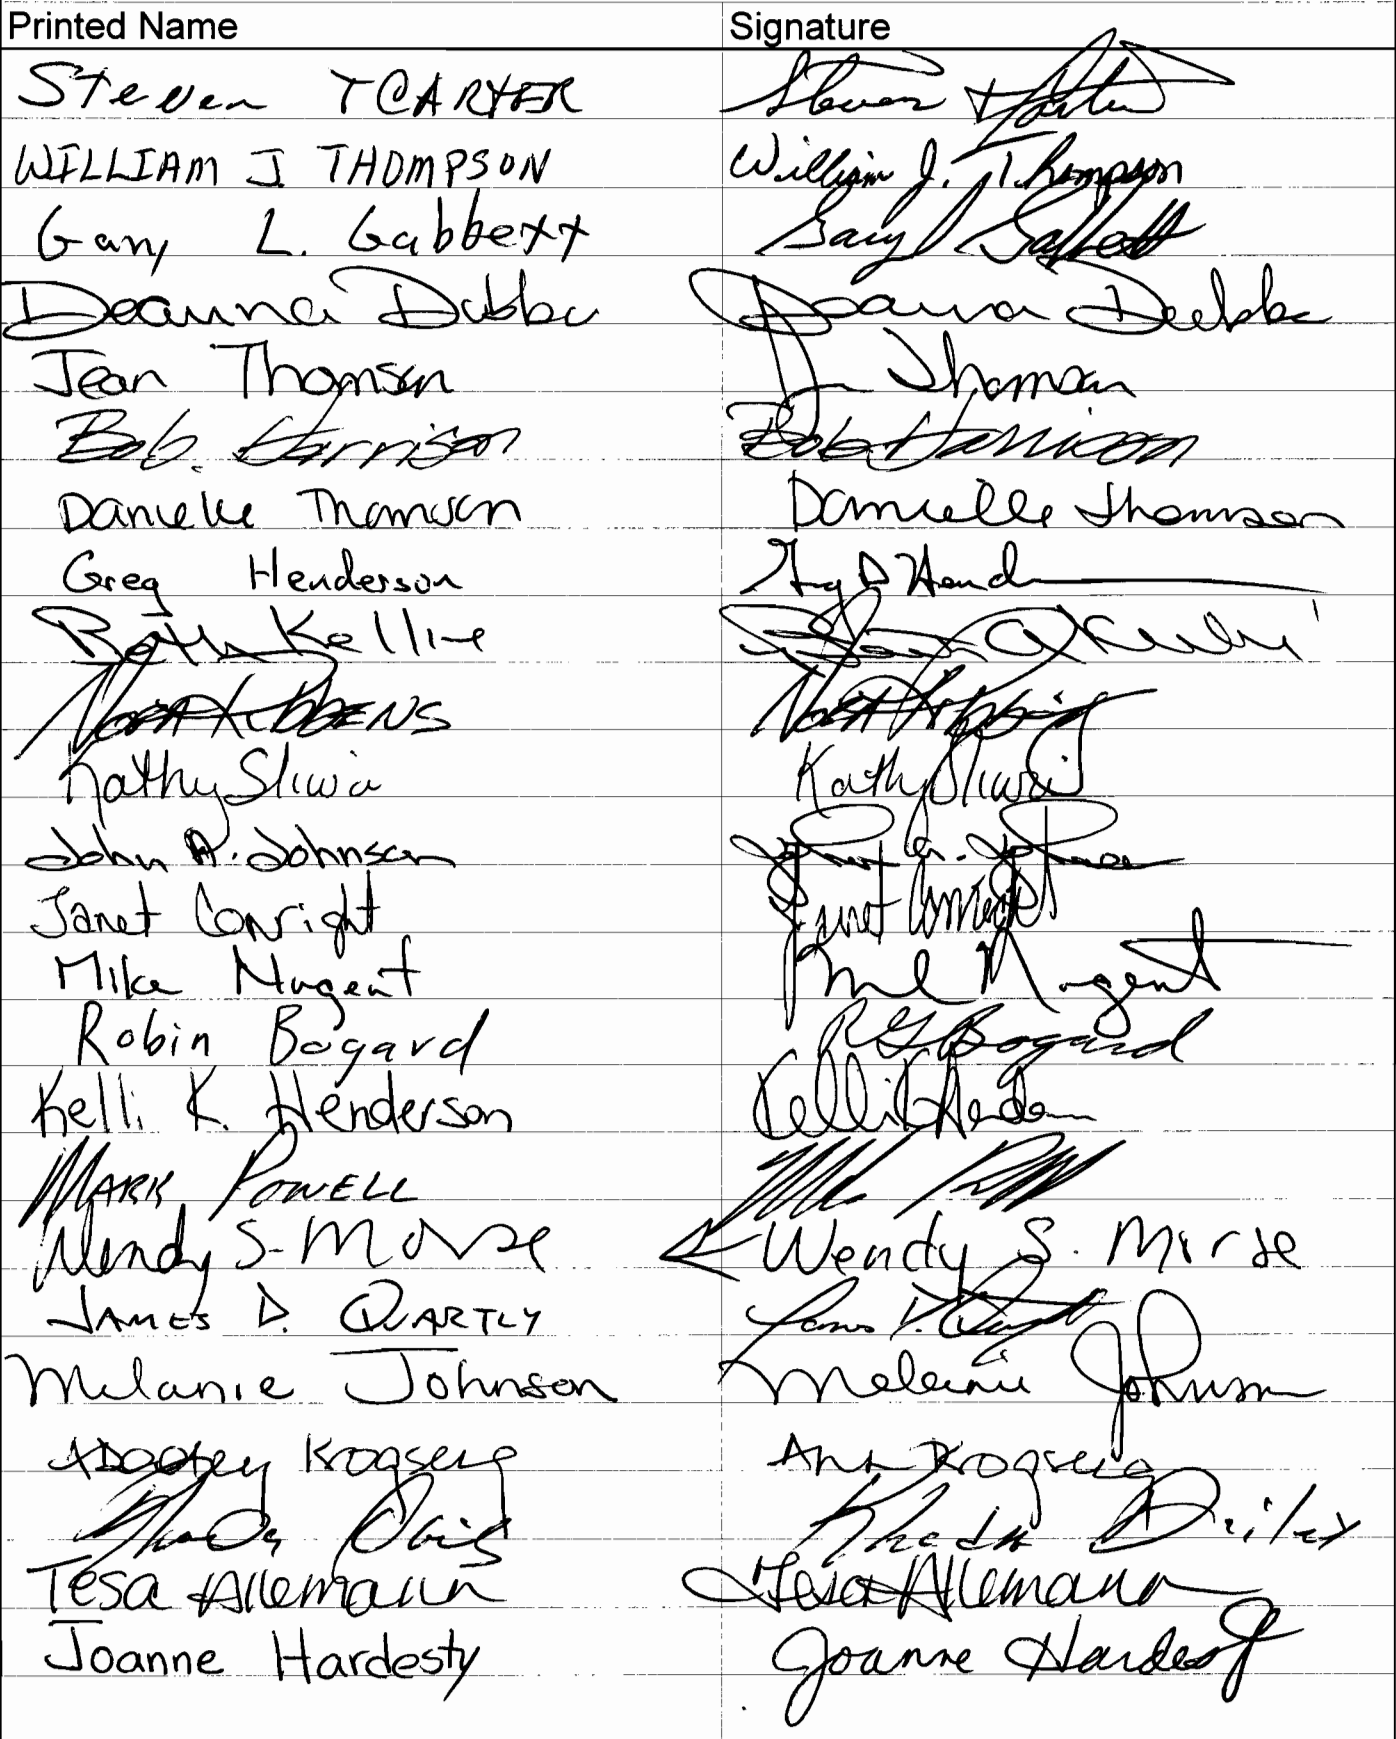 Printed Name Signature
Steven T CARTER Steven T Carter
WILLIAM J THOMPSON William J. Thompson
Gary L. Gabbett Gary L Gabbett
Deanna Dubbe Deanna Dubbe
Jean Thomson J Thomson
Bob. Harrison Bob Harrison
Danielle Thomson Danielle Thomson
Greg Henderson Greg D Hend
Kellie
KIBBENS
Kathy Sliwa Kathy Sliwa
John A. Johnson John A. Johnson
Janet Conright Janet Conright
Mike Nugent Nugent
Robin Bogard RG Bogard
Kelli K. Henderson Kelli K Henderson
MARK POWELL
Wendy S. Morse Wendy S. Morse
JAMES D. QUARTLY James D. Quartly
Melanie Johnson Melanie Johnson
Tesa Allemann Tesa Allemann
Joanne Hardesty Joanne Hardesty